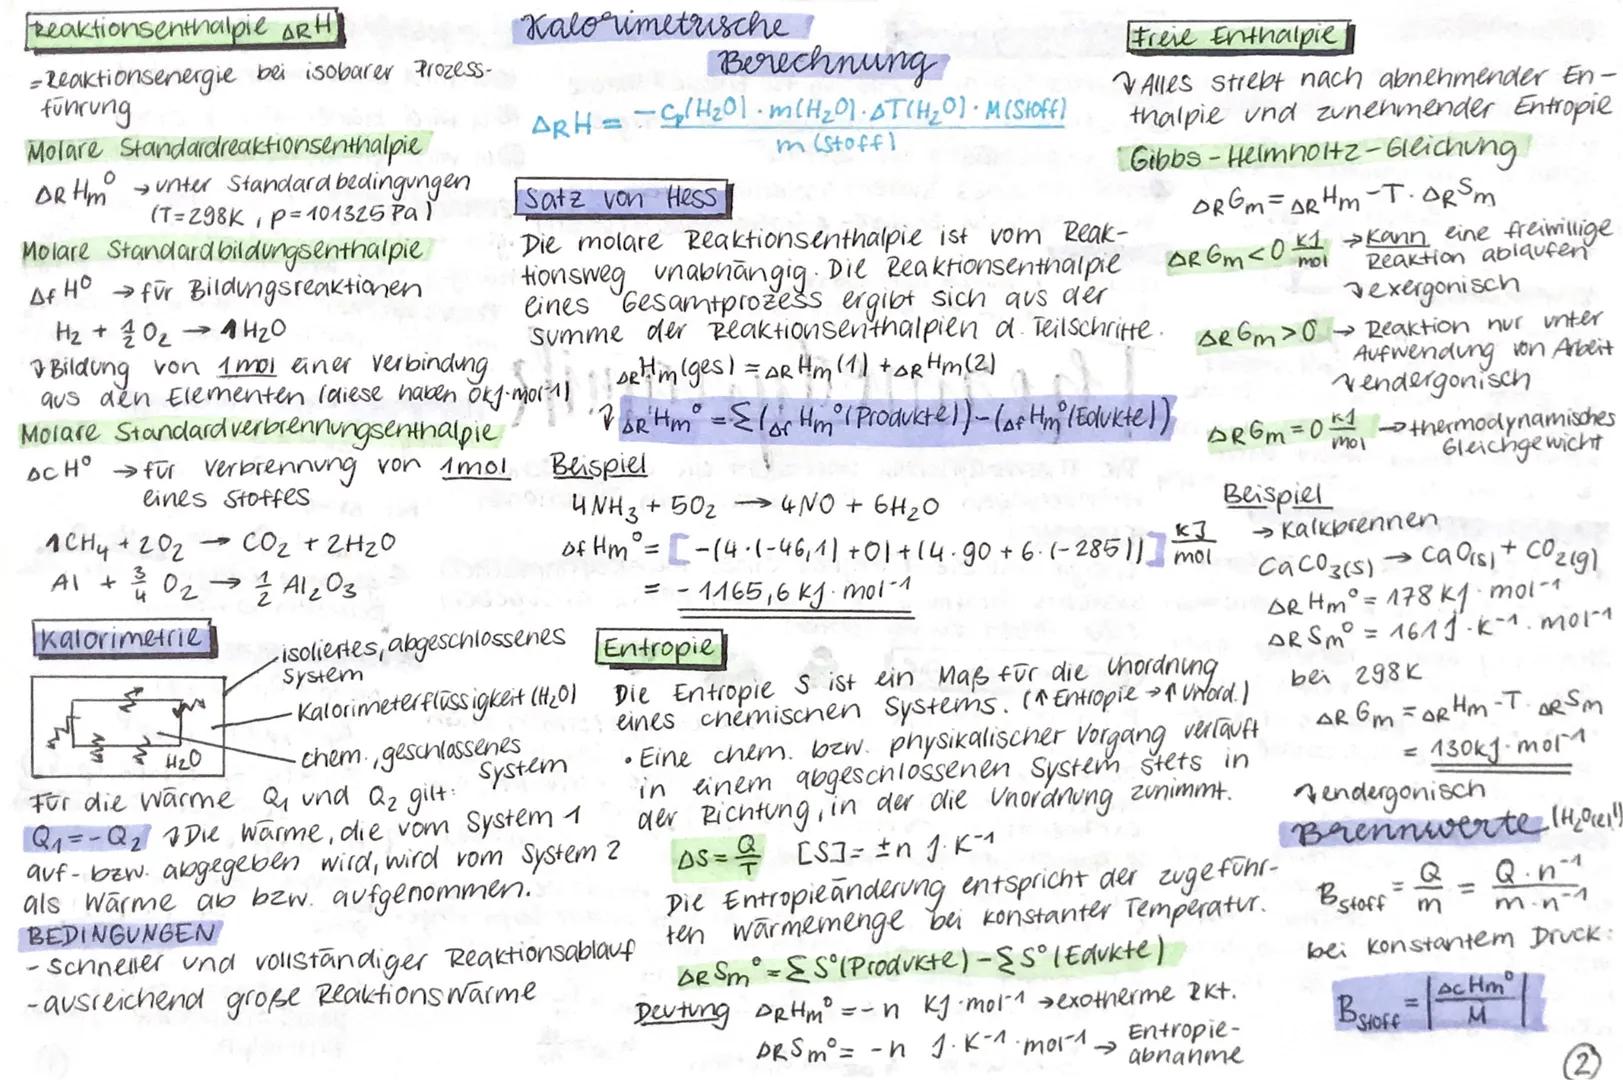 Reaktionsenthalpie ΔRH
= Reaktionsenergie bei isobarer Prozess-
führung
Molare Standardreaktionsenthalpie
ΔRHm⁰ → unter Standardbedingungen
(T=298K, p=101325Pa)
Molare Standardbildungsenthalpie
ΔfH⁰ → für Bildungsreaktionen
H₂ + ½ O₂ → 1 H₂O
↴ Bildung von 1mol einer Verbindung
aus den Elementen (diese haben 0kJ·mol⁻¹)
Molare Standardverbrennungsenthalpie
ΔcH⁰ → für Verbrennung von 1mol
eines Stoffes
1CH₄ + 2O₂ → CO₂ + 2H₂O
Al + ¾ O₂ → ½ Al₂O₃
Kalorimetrie
isoliertes, abgeschlossenes
System
Kalorimeterflüssigkeit (H₂O)
chem., geschlossenes
System
H₂O
Für die Wärme Q₁ und Q₂ gilt:
Q₁=-Q₂ ↴ Die Wärme, die vom System 1
auf- bzw. abgegeben wird, wird vom System 2
als Wärme ab bzw. aufgenommen.
BEDINGUNGEN
- schneller und vollständiger Reaktionsablauf
- ausreichend große Reaktionswärme
Kalorimetrische
Berechnung
ΔRH = -cp(H₂O) · m(H₂O) · ΔT(H₂O) · M(Stoff) / m(Stoff)
Satz von Hess
Die molare Reaktionsenthalpie ist vom Reak-
tionsweg unabhängig. Die Reaktionsenthalpie
eines Gesamtprozess ergibt sich aus der
Summe der Reaktionsenthalpien d. Teilschritte.
ΔRHm(ges) = ΔRHm(1) + ΔRHm(2)
↴ ΔRHm⁰ = Σ(ΔfHm⁰(Produkte)) - (ΔfHm⁰(Edukte))
Beispiel
4NH₃ + 5O₂ → 4NO + 6H₂O
ΔfHm⁰ = [-(4·(-46,1)+0)+(4·90+6·(-285))] kJ/mol
= -1165,6 kJ·mol⁻¹
Entropie
Die Entropie S ist ein Maß für die Unordnung
eines chemischen Systems. (↑ Entropie → ↑ Unord.)
• Eine chem. bzw. physikalischer Vorgang verläuft
in einem abgeschlossenen System stets in
der Richtung, in der die Unordnung zunimmt.
ΔS = Q/T [S] = ±n J·K⁻¹
Die Entropieänderung entspricht der zugeführ-
ten Wärmemenge bei konstanter Temperatur.
ΔRSm⁰ = ΣS⁰(Produkte) - ΣS⁰(Edukte)
Deutung ΔRHm⁰ = -n kJ·mol⁻¹ → exotherme Rkt.
ΔRSm⁰ = -n J·K⁻¹·mol⁻¹ → Entropie-
abnahme
Freie Enthalpie
↴ Alles strebt nach abnehmender En-
thalpie und zunehmender Entropie
Gibbs-Helmholtz-Gleichung
ΔRGm = ΔRHm - T·ΔRSm
ΔRGm < 0 kJ/mol → Kann eine freiwillige
Reaktion ablaufen
↴ exergonisch
ΔRGm > 0 → Reaktion nur unter
Aufwendung von Arbeit
↴ endergonisch
ΔRGm = 0 kJ/mol → thermodynamisches
Gleichgewicht
Beispiel
→ Kalkbrennen
CaCO₃(s) → CaO(s) + CO₂(g)
ΔRHm⁰ = 178 kJ·mol⁻¹
ΔRSm⁰ = 161 J·K⁻¹·mol⁻¹
bei 298K
ΔRGm = ΔRHm - T·ΔRSm
= 130kJ·mol⁻¹
↴ endergonisch
Brennwerte (H₂O(l)!)
BStoff = Q/m = Q·n⁻¹/m·n⁻¹
bei konstantem Druck:
BStoff = |ΔcHm⁰/M|
2